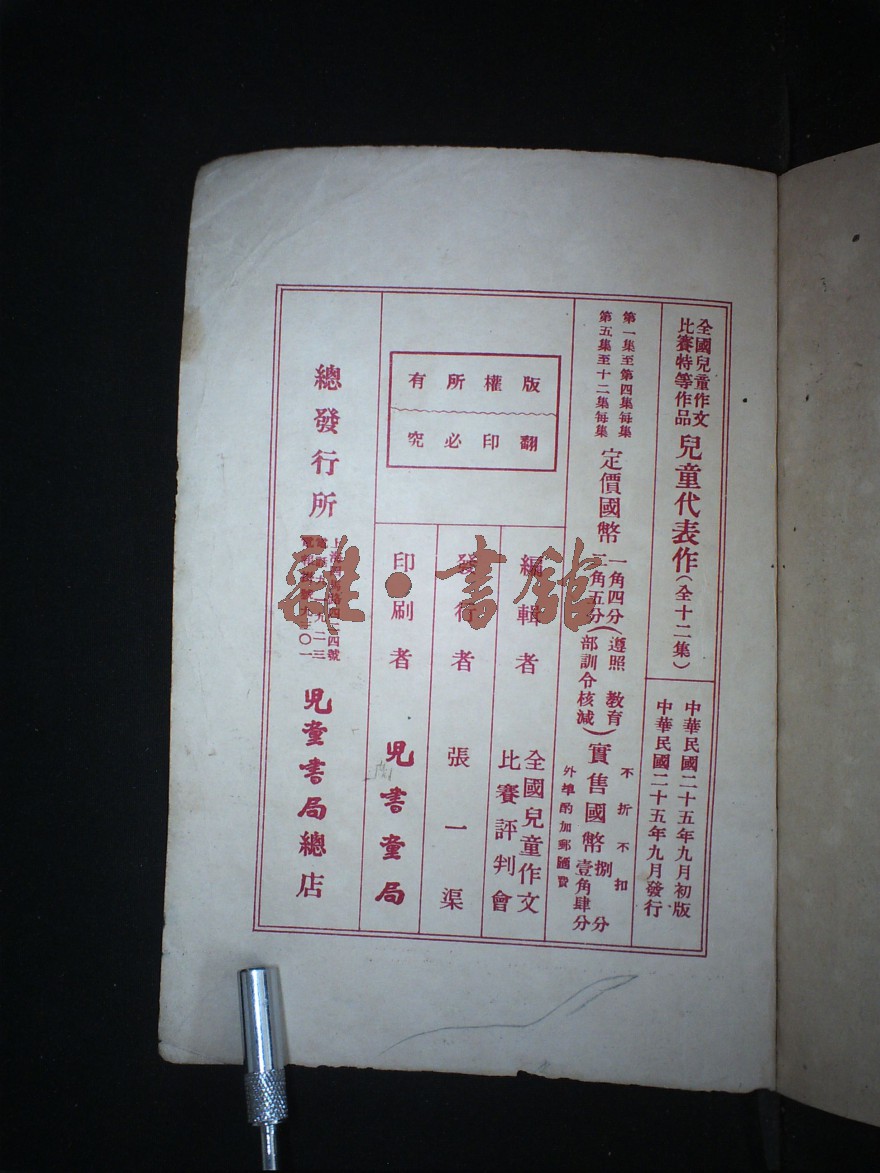 全國兒童作文
比賽特等作品
兒童代表作(全十二集)
中華民國二十五年九月初版
中華民國二十五年九月發行
第一集至第四集每集
第五集至十二集每集
定價國幣
一角四分
二角五分
(遵照 教育
部訓令核減)
實售國幣
捌 分
壹角肆分
不折不扣
外埠酌加郵匯費
版權所有
翻印必究
編輯者
全國兒童作文
比賽評判會
發行者
張一渠
印刷者
兒童書局
總發行所
上海四馬路四二四號
兒童書局總店
雜·書館